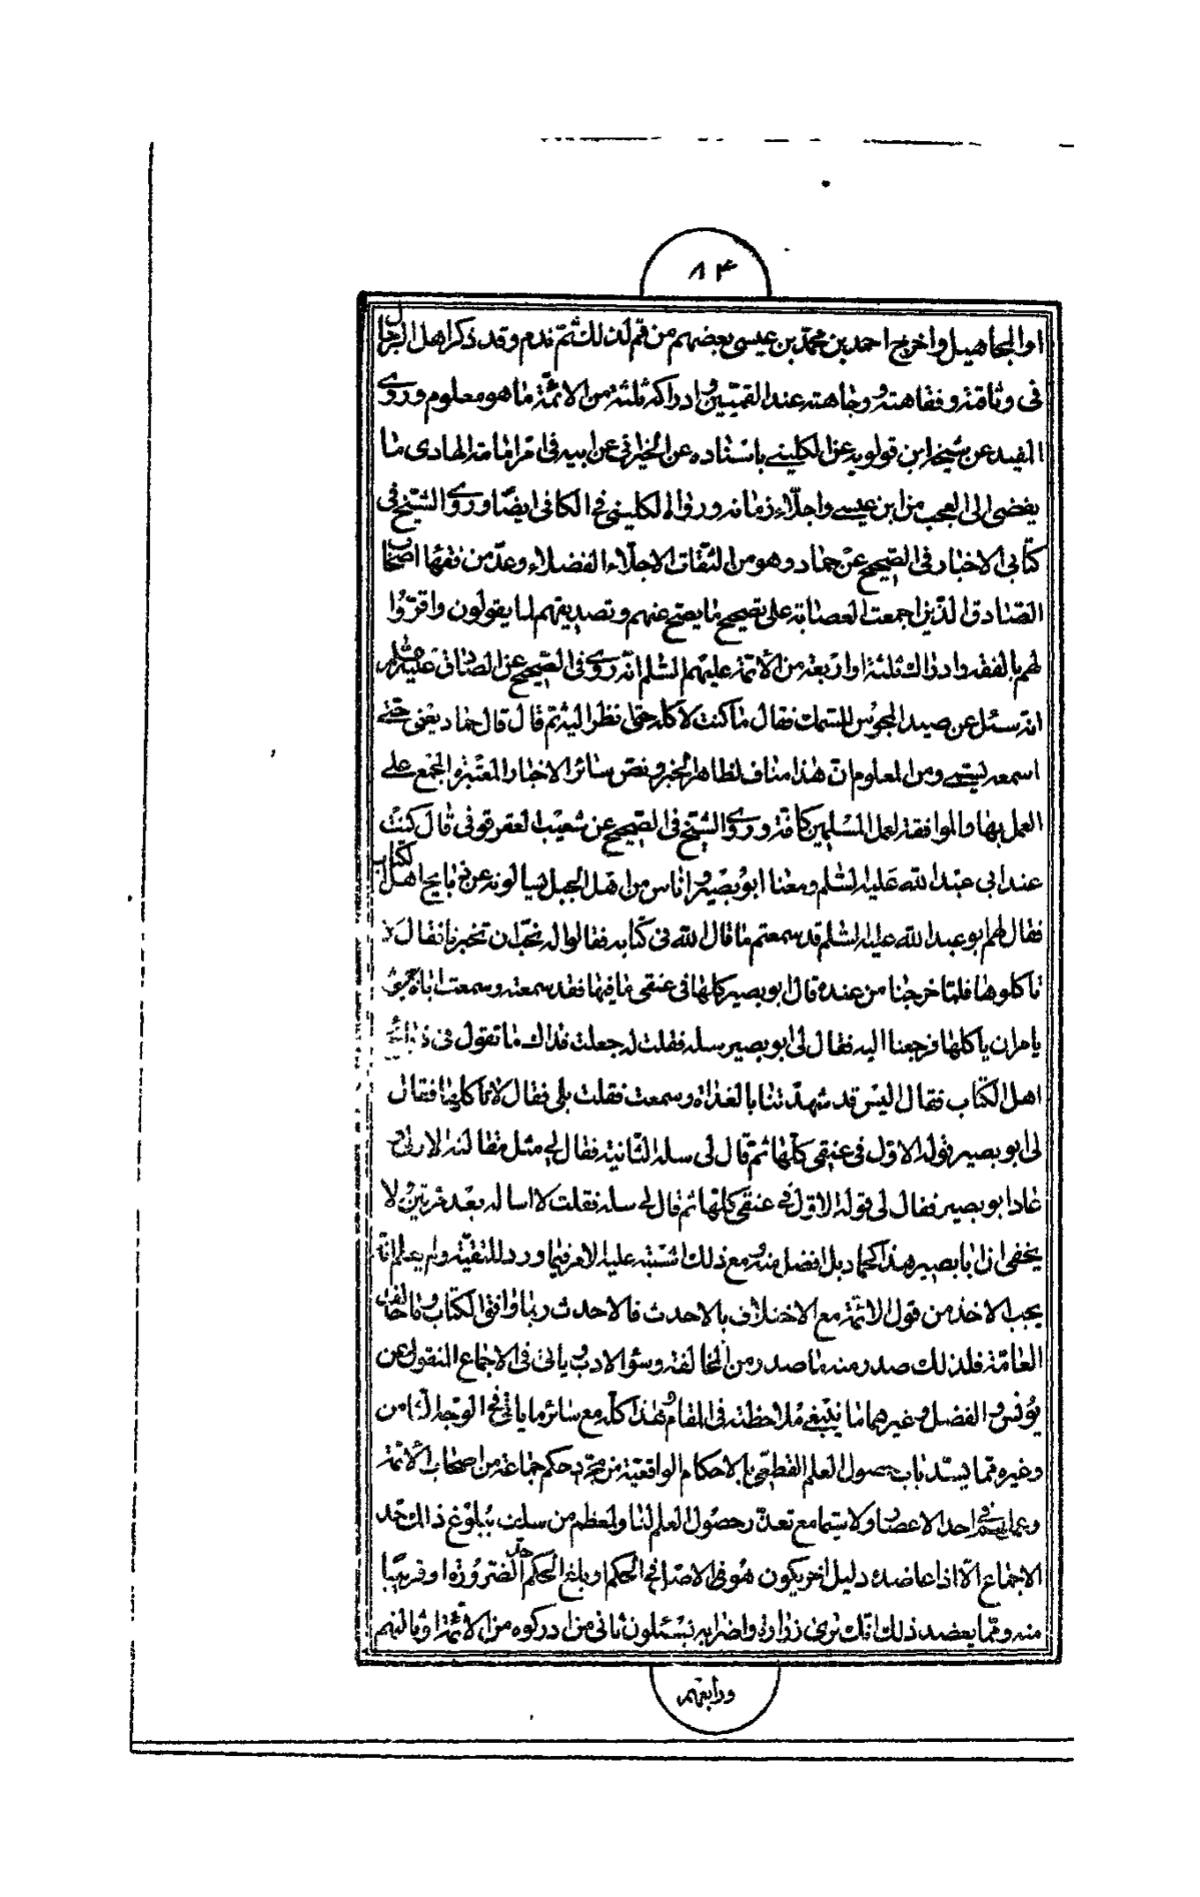 ٨٤
او المجاهيل واخرج احمد بن محمد بن عيسى بعضهم من قم لذلك ثم ندم وقد ذكر اهل الرجال
فى وثاقته وفقاهته ووجاهته عند القميّين وادراكه ثلثة من الائمّة ما هو معلوم وروى
المفيد عن شيخه ابن قولويه عن الكلينى باسناده عن الخيرانى عن ابيه فى امر امامة الهادى ما
يفضى الى العجب من ابن عيسى واجلّاء زمانه ورواه الكلينى فى الكافى ايضًا وروى الشيخ فى
كتابى الاخبار فى الصّحيح عن حماد وهو من الثقات الاجلّاء الفضلاء وعدّ من فقهاء اصحاب
الصّادق الذين اجمعت العصابة على تصحيح ما يصحّ عنهم وتصديقهم لما يقولون واقرّوا
لهم بالفقه وادرك ثلثة او اربعة من الائمّة عليهم السّلم انّه روى فى الصّحيح عن الصّادق عليه السّلم
انّه سئل عن صيد المجوس للسّمك فقال ما كنت لاكله حتى انظر اليه ثم قال قال حماد يعنى حتى
اسمعه يسمى ومن المعلوم انّ هذا مناف لظاهر الخبر ونصّ سائر الاخبار المعتبرة والجمع على
العمل بها والموافقة لعمل المسلمين كافّة وروى الشيخ فى الصّحيح عن شعيب العقرقوفى قال كنت
عند ابى عبد الله عليه السّلم ومعنا ابو بصير واناس من اهل الجبل يسالونه عن ذبايح اهل الكتاب
فقال لهم ابو عبد الله عليه السّلم قد سمعتم ما قال الله فى كتابه فقالوا له نحبّ ان تخبرنا فقال لا
تاكلوها فلمّا خرجنا من عنده قال ابو بصير كلها فى عنقى ما فيها فقد سمعته وسمعت اباه جميعا
يامران باكلها فرجعنا اليه فقال لى ابو بصير سله فقلت له جعلت فداك ما تقول فى ذبائح
اهل الكتاب فقال اليس قد شهدتنا بالغداة وسمعت فقلت بلى فقال لا تاكلها فقال
لى ابو بصير قوله الاوّل فى عنقى كلها ثم قال لى سله الثّانية فقال لى مثل مقالته الاولى
عاد ابو بصير فقال لى قوله الاوّل فى عنقى كلها ثم قال لى سله فقلت لا اساله بعد مرّتين ولا
يخفى ان ابا بصير هذا كحماد بل افضل منه ومع ذلك اشتبه عليه الامر فيما ورد للتقيّة ولم يعلم انّه
يجب الاخذ من قول الائمّة مع الاختلاف بالاحدث فالاحدث وبما وافق الكتاب وما خالف
العامّة فلذلك صدر منه ما صدر من المخالفة وسؤ الادب وياتى فى الاجماع المنقول عن
يونس والفضل وغيرهما ما ينبغى ملاحظته فى المقام وهذا كله مع سائر ما ياتى فى الوجه الثامن
وغيره ممّا يسدّ باب حصول العلم القطعى بالاحكام الواقعيّة من مجرّد حكم جماعة من اصحاب الائمّة
وعملهم فى احد الاعصار ولا سيّما مع تعذّر حصول العلم لنا ولمعظم من سلف ببلوغ ذلك حد
الاجماع الّا اذا عاضده دليل اخر يكون هو فى الاصل فى الحكم او بلغ الحكم حدّ الضّرورة او قريبًا
منه وممّا يعضد ذلك انّك ترى زرارة واضرابه يسئلون ثانى من ادركوه من الائمّة او ثالثهم
ورابعهم